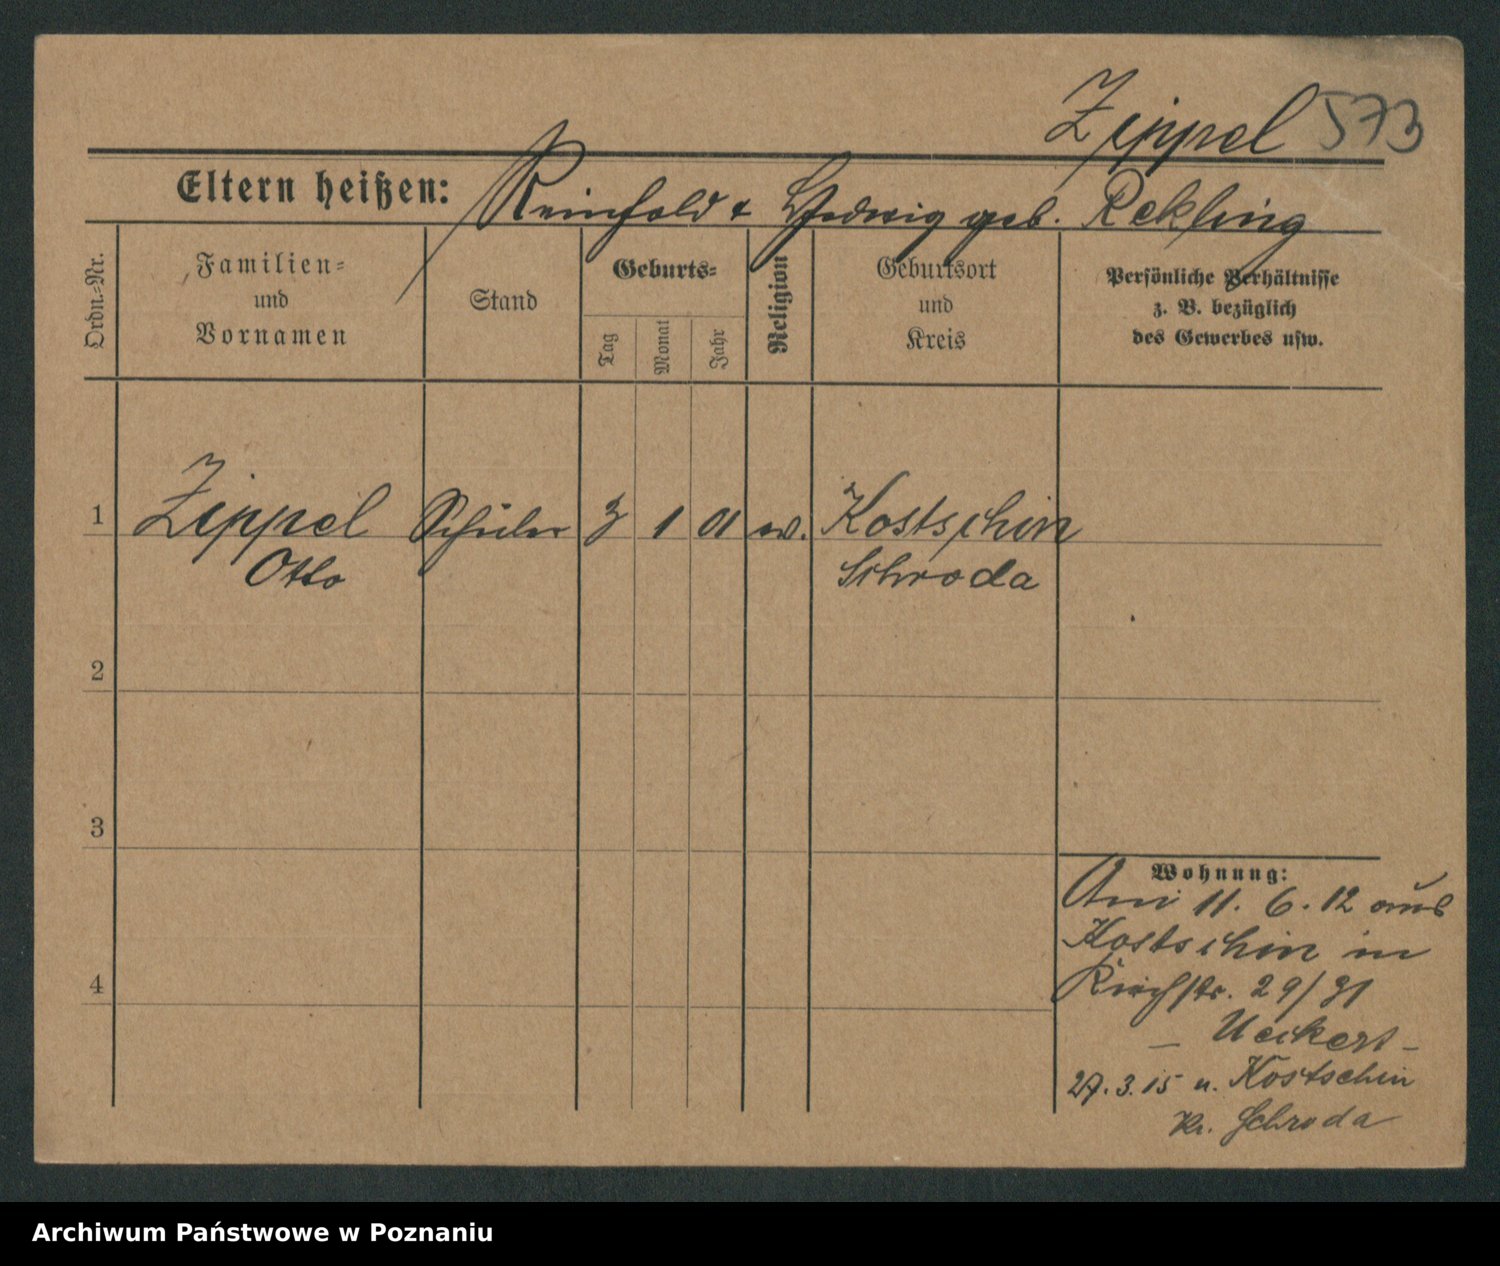 Zippel 573
Eltern heißen: Reinhold & Hedwig geb. Rekling
Ordn.-Nr.
Familien-
und
Vornamen
Stand
Geburts-
Tag
Monat
Jahr
Religion
Geburtsort
und
Kreis
Persönliche Verhältnisse
z. B. bezüglich
des Gewerbes usw.
1 Zippel Schüler 3 1 01 ev. Kostschin
Otto Schroda
2
3
4
Wohnung:
Am 11. 6. 12 aus
Kostschin in
Kirchstr. 29/31
— Ueckert —
27. 3. 15 n. Kostschin
Kr. Schroda
Archiwum Państwowe w Poznaniu